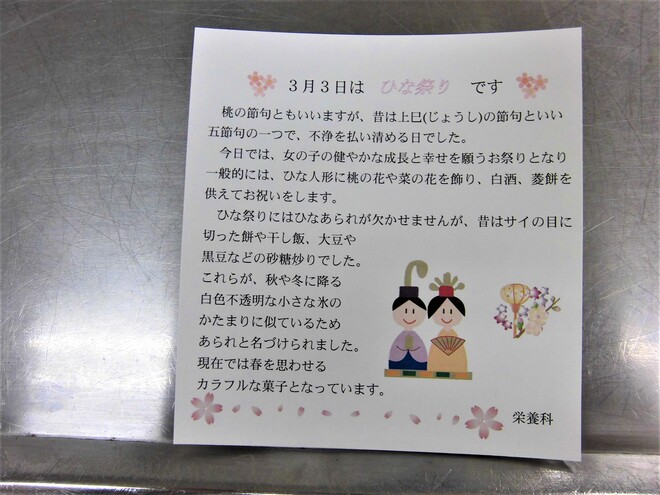 3月3日は ひな祭り です
桃の節句ともいいますが、昔は上巳(じょうし)の節句といい
五節句の一つで、不浄を払い清める日でした。
今日では、女の子の健やかな成長と幸せを願うお祭りとなり
一般的には、ひな人形に桃の花や菜の花を飾り、白酒、菱餅を
供えてお祝いをします。
ひな祭りにはひなあられが欠かせませんが、昔はサイの目に
切った餅や干し飯、大豆や
黒豆などの砂糖炒りでした。
これらが、秋や冬に降る
白色不透明な小さな氷の
かたまりに似ているため
あられと名づけられました。
現在では春を思わせる
カラフルな菓子となっています。
栄養科